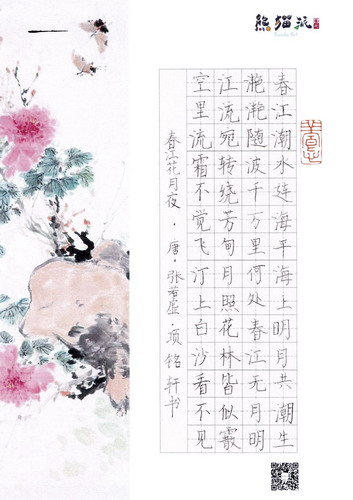 熊猫派
春江潮水连海平海上明月共潮生
滟滟随波千万里何处春江无月明
江流宛转绕芳甸月照花林皆似霰
空里流霜不觉飞汀上白沙看不见
春江花月夜·唐·张若虚·项铭轩书